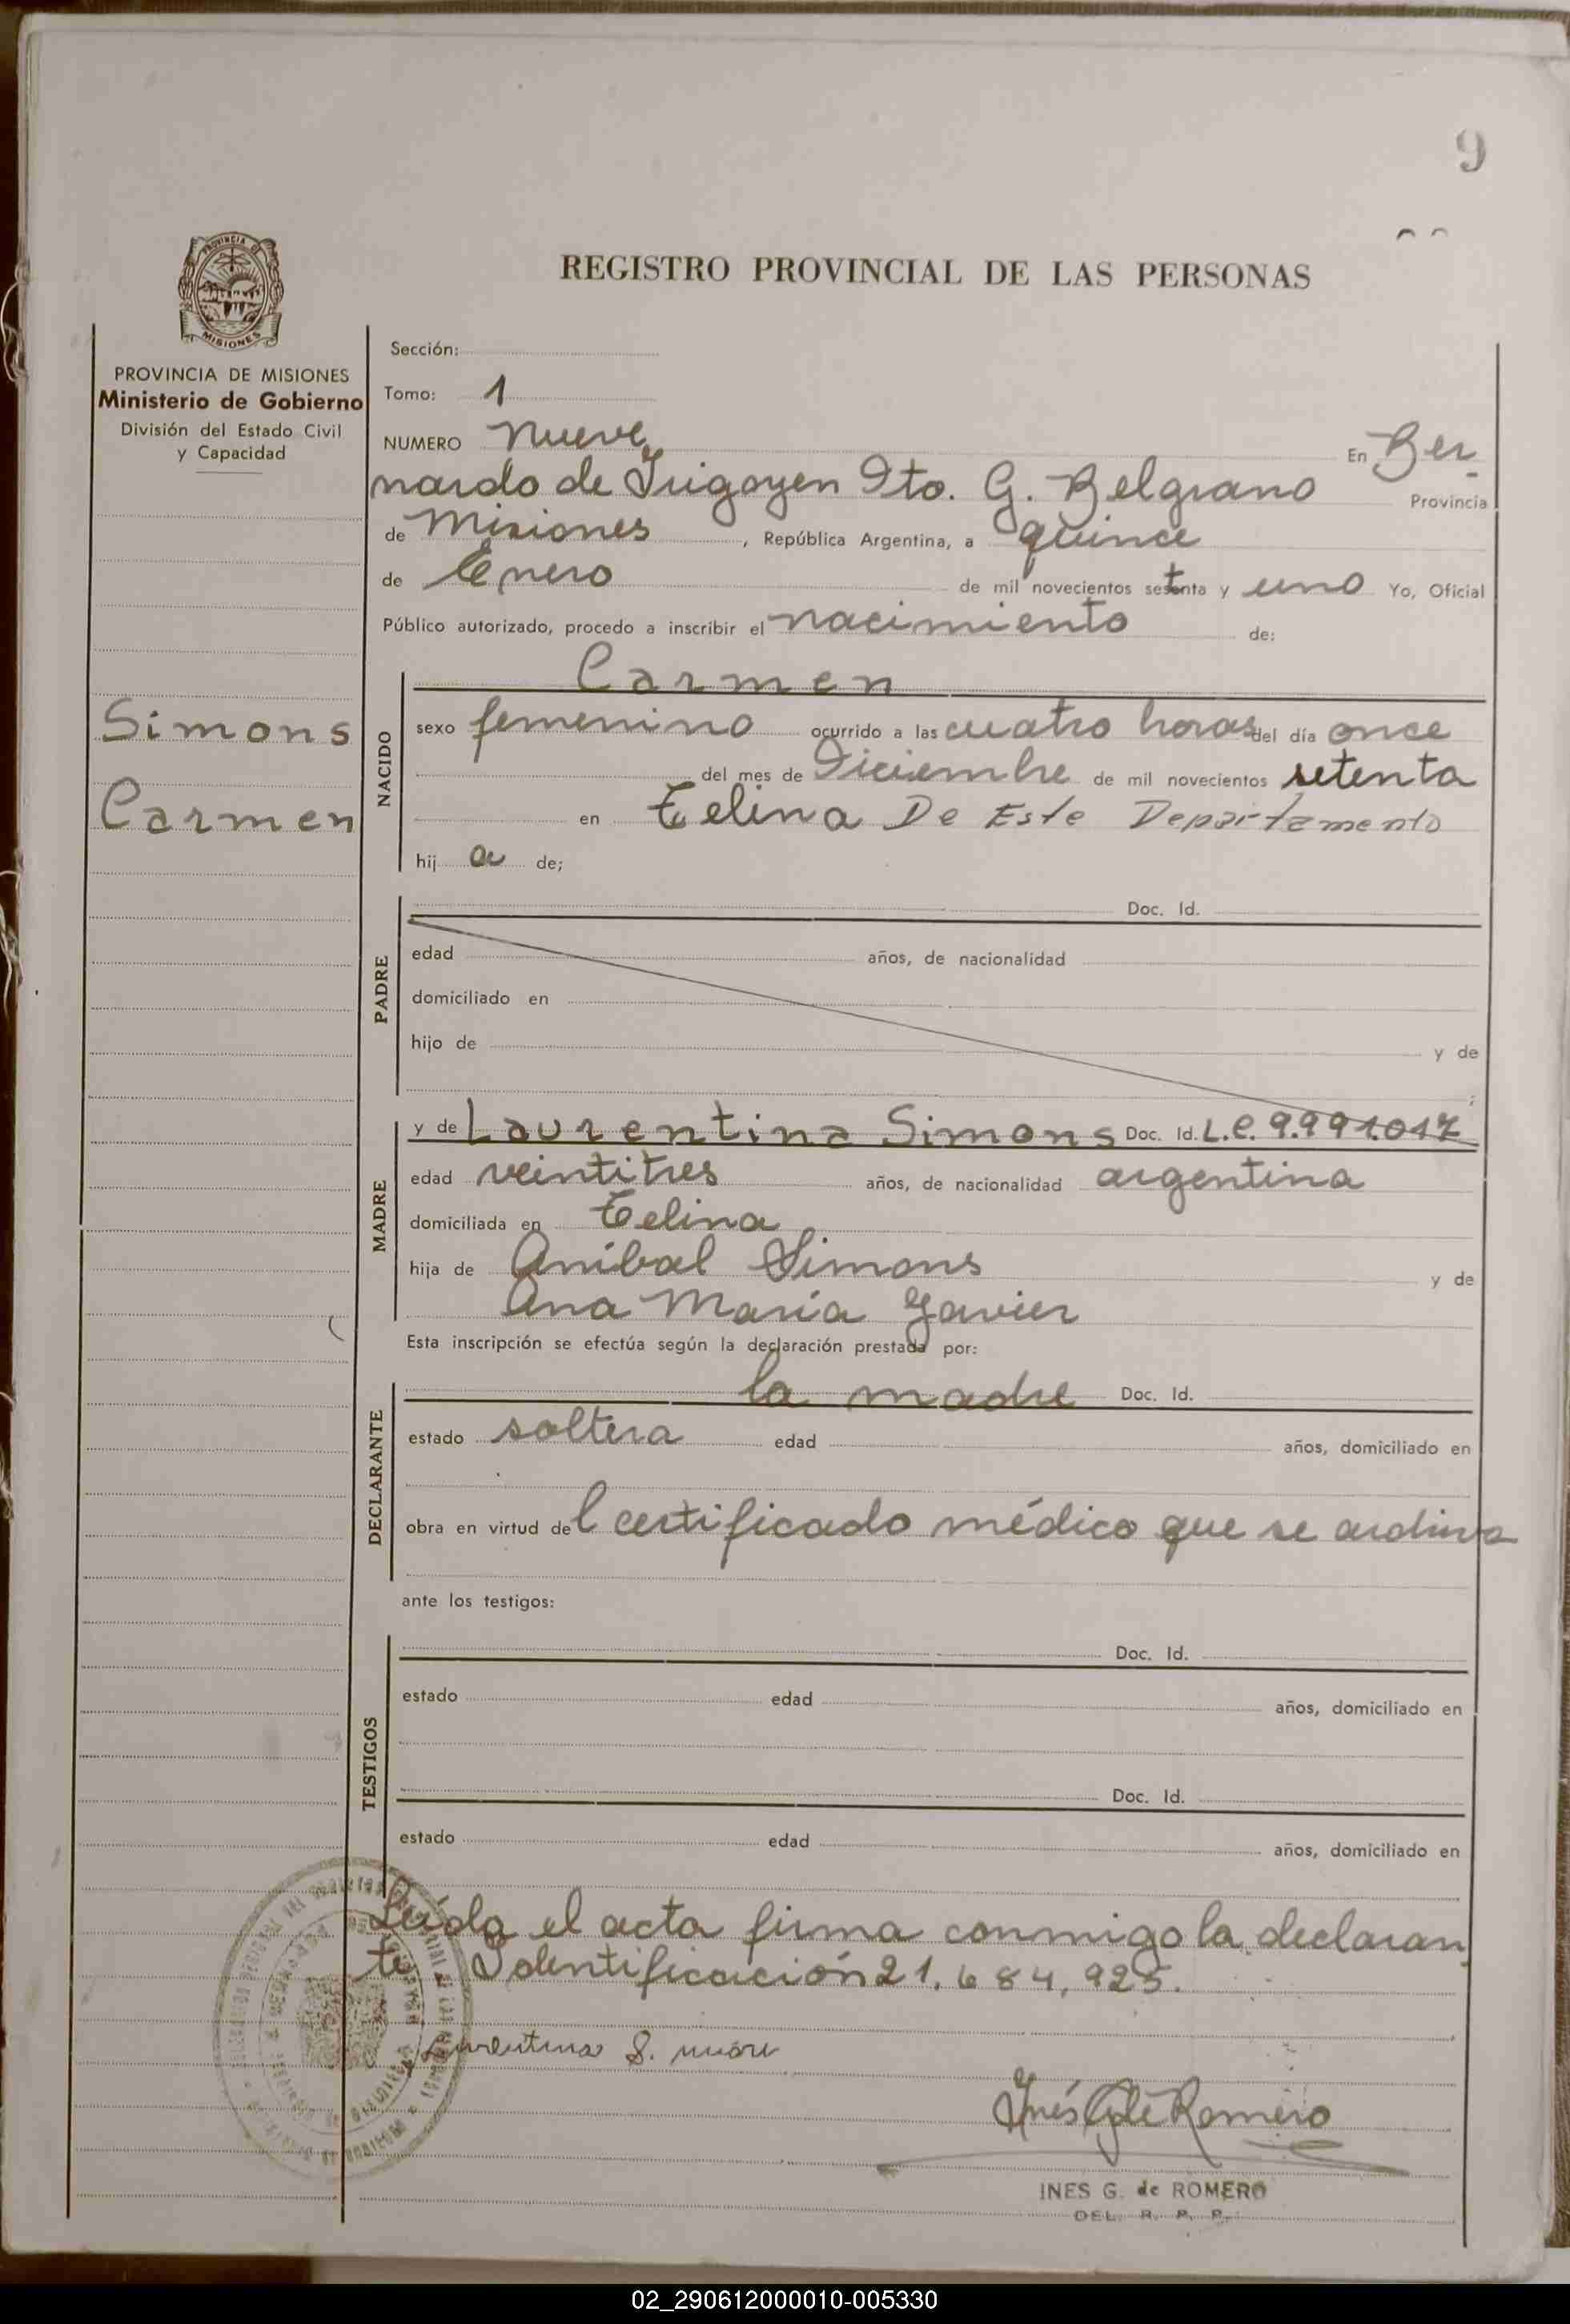 9
REGISTRO PROVINCIAL DE LAS PERSONAS
PROVINCIA DE MISIONES
PROVINCIA DE MISIONES
Ministerio de Gobierno
División del Estado Civil
y Capacidad
Simons
Carmen
Sección:
Tomo: 1
NUMERO nueve En Ber-
nardo de Irigoyen Dto. G. Belgrano Provincia
de Misiones, República Argentina, a quince
de Enero de mil novecientos setenta y uno Yo, Oficial
Público autorizado, procedo a inscribir el nacimiento de:
NACIDO
Carmen
sexo femenino ocurrido a las cuatro horas del día once
del mes de Diciembre de mil novecientos setenta
en Celina De Este Departamento
hij a de;
PADRE
Doc. Id.
edad años, de nacionalidad
domiciliado en
hijo de y de
;
MADRE
y de Laurentina Simons Doc. Id. L.C. 9.991.017
edad veintitres años, de nacionalidad argentina
domiciliada en Celina
hija de Aníbal Simons y de
Ana María Gavier
Esta inscripción se efectúa según la declaración prestada por:
DECLARANTE
la madre Doc. Id.
estado soltera edad años, domiciliado en
obra en virtud del certificado médico que se archiva
ante los testigos:
TESTIGOS
Doc. Id.
estado edad años, domiciliado en
Doc. Id.
estado edad años, domiciliado en
Leída el acta firma conmigo la declaran-
te. Identificación 21.684,925.
Laurentina S.
Inés G de Romero
INES G. de ROMERO
DEL. R. P. P.
02_290612000010-005330